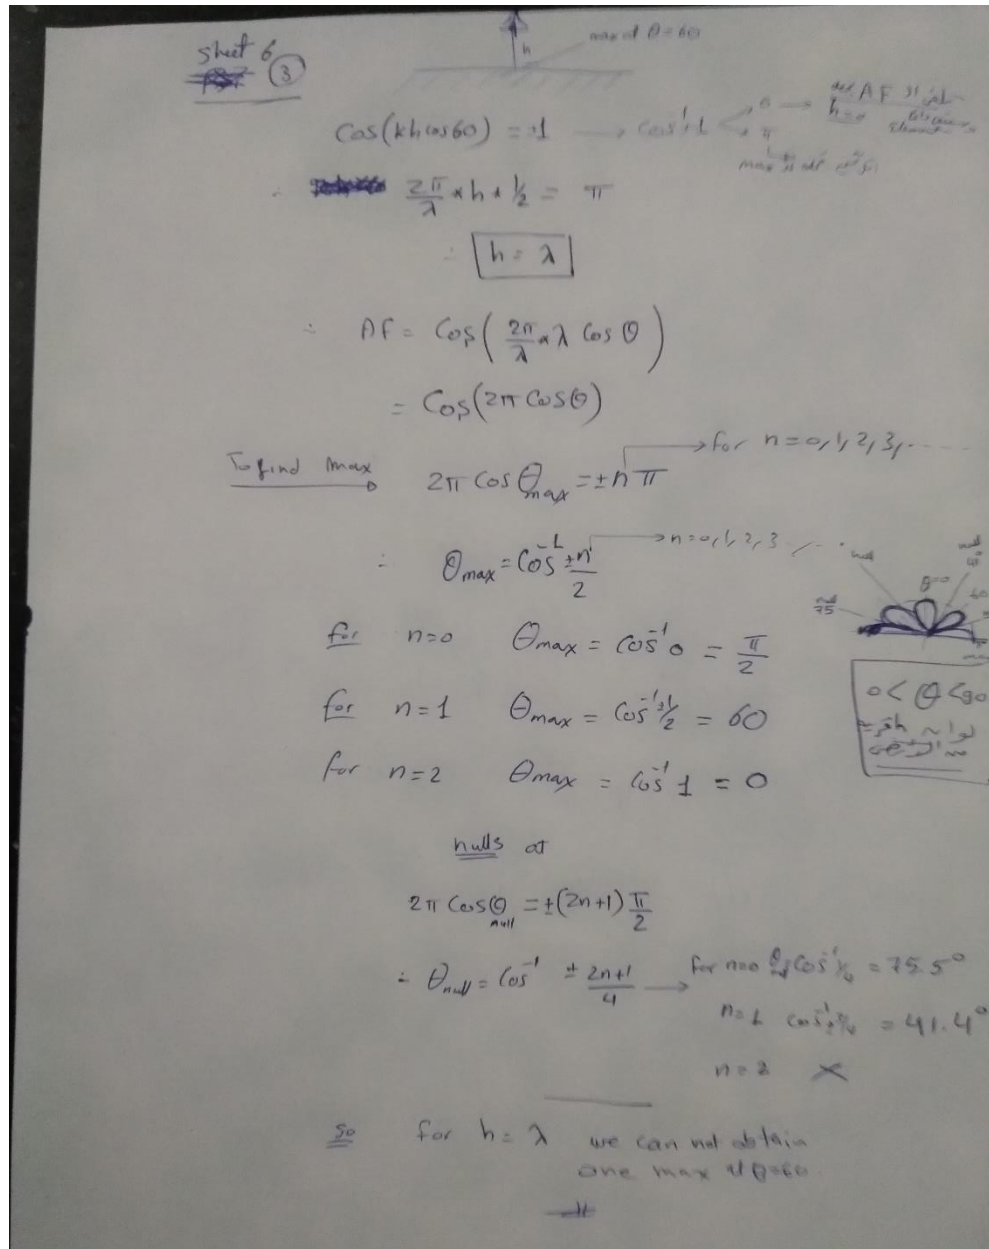 sheet 6
3
h
max at θ = 60
Cos(kh cos60) = ±1 → cos⁻¹ ±1
0 →
AF ال
h=0
π
max
2π/λ * h * 1/2 = π
∴ h = λ
∴ AF = Cos( 2π/λ * λ Cos θ )
= Cos(2π Cosθ)
To find max → 2π Cos θmax = ± n π → for n = 0, 1, 2, 3, ....
∴ θmax = Cos⁻¹ ± n/2 → n = 0, 1, 2, 3, ....
null
null
θ=0
60
null 75
for n=0 θmax = Cos⁻¹ 0 = π/2
0 < θ < 90
for n = 1 θmax = Cos⁻¹ ±1/2 = 60
for n = 2 θmax = Cos⁻¹ 1 = 0
nulls at
2π Cosθnull = ±(2n+1) π/2
∴ θnull = Cos⁻¹ ± 2n+1/4 → for n=0 Cos⁻¹ 1/4 = 75.5°
n=1 Cos⁻¹ 3/4 = 41.4°
n = 2 ×
So for h = λ we can not obtain
one max at θ=60
#